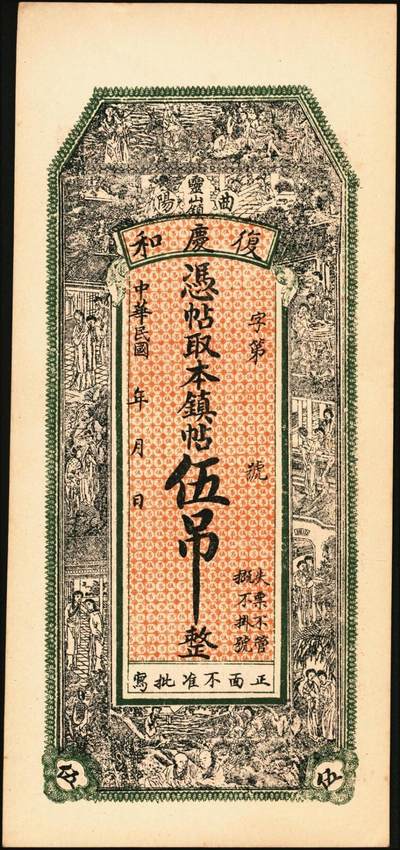 曲陽
靈山鎮
復慶和
字第 號
失票不管
概不掛號
憑帖取本鎮帖伍吊整
中華民國 年 月 日
正面不准批寫